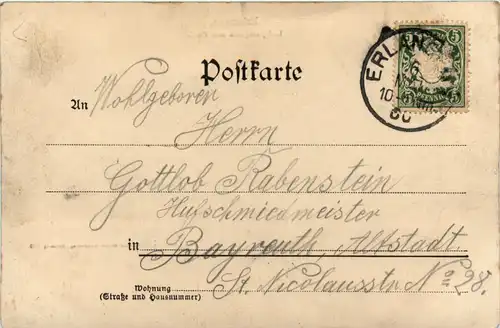 Postkarte
An Wohlgeboren
Herrn
Gottlob Rabenstein
Hufschmiedmeister
in Bayreuth, Altstadt
Wohnung
(Straße und Hausnummer)
St. Nicolausstr. No 298.
5 5
5 5
ERLAN
10